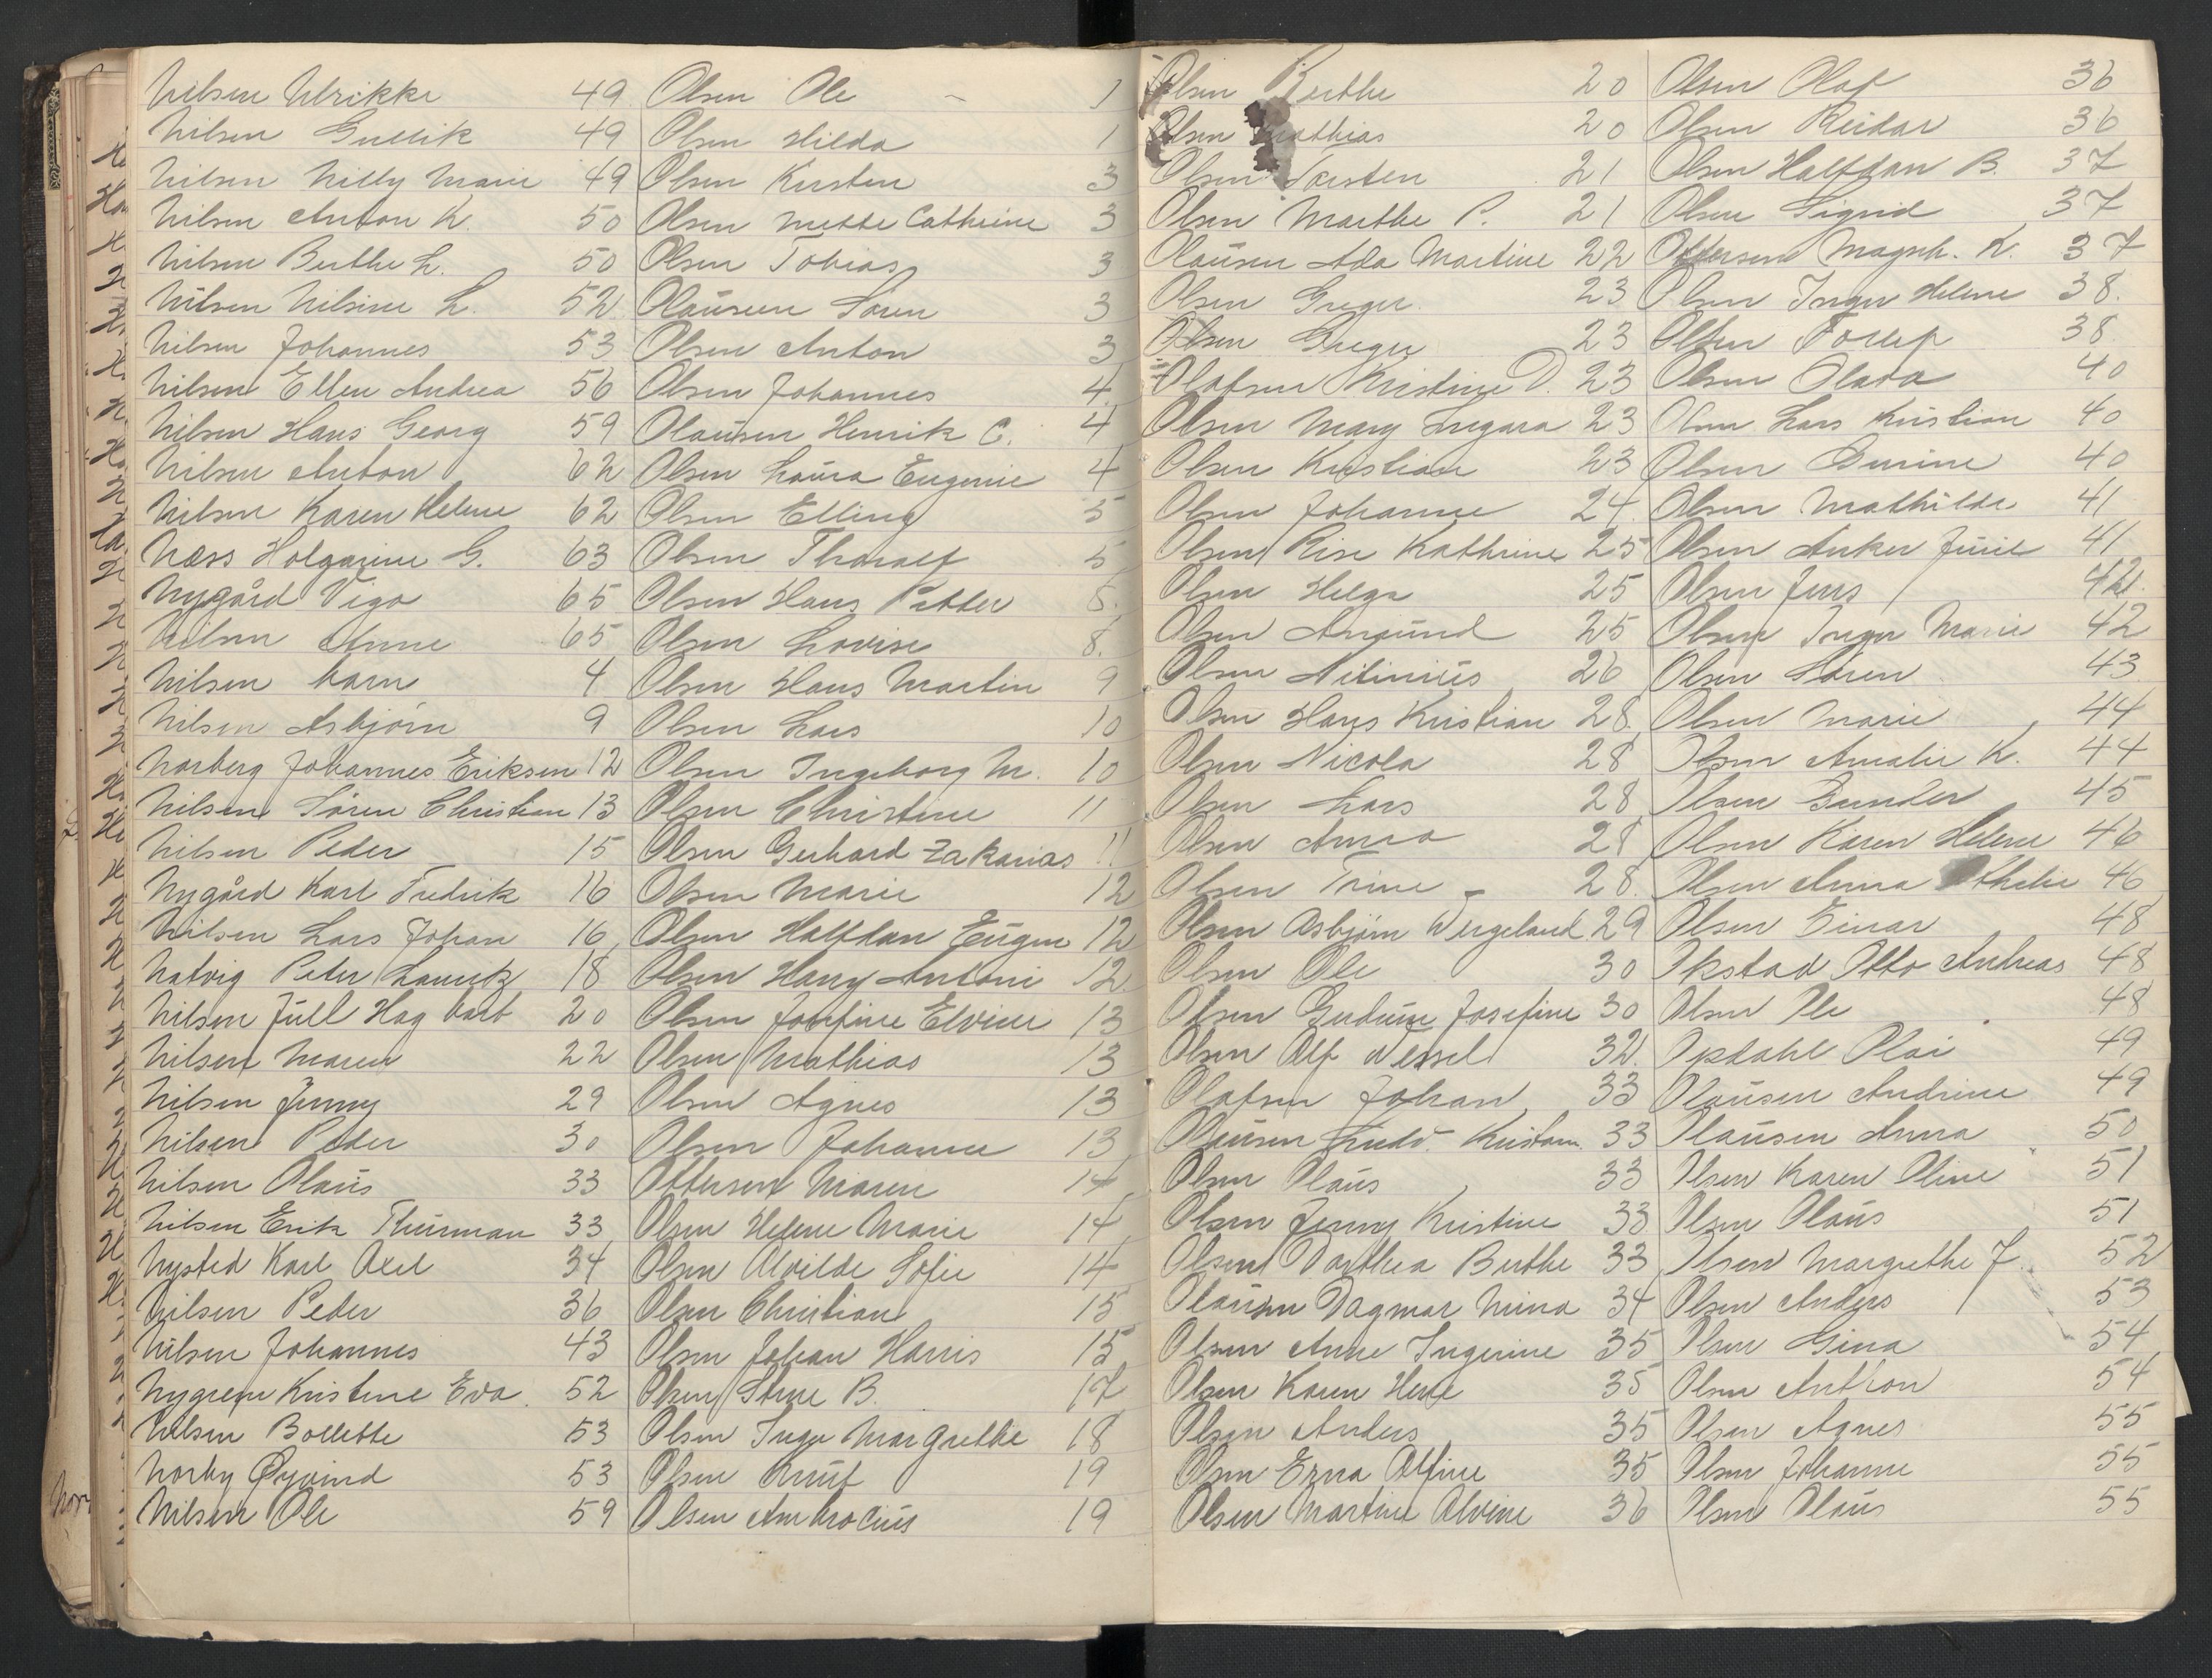 Nilsen Ulrikke 49
Nilsen Gullik 49
Nilsen Nilly Marie 49
Nilsen Anton K. 50
Nilsen Berthe L. 50
Nilsen Nilsine L. 52
Nilsen Johannes 53
Nilsen Ellen Andrea 56
Nilsen Hans Georg 59
Nilsen Anton 62
Nilsen Karen Helene 62
Næss Holgarine G. 63
Nygård Vigo 65
Nilsen Anne 65
Nilsen barn 4
Nilsen Asbjørn 9
Norberg Johannes Eriksen 12
Nilsen Sören Christian 13
Nilsen Peder 15
Nygård Karl Fredrik 16
Nilsen Lars Johan 16
Natvig Peter 18
Nilsen Jull Hag bart 20
Nilsen Maren 22
Nilsen Jenny 29
Nilsen Peder 30
Nilsen Olaus 33
Nilsen Erik Thurman 33
Nysted Karl Axel 34
Nilsen Peder 36
Nilsen Johannes 43
Nygren Kristine Eva. 52
Nilsen Bollette 53
Norby Øyvind 53
Nilsen Ole 59
Olsen Ole 1
Olsen Hilda 1
Olsen Kirsten 3
Olsen Mette Cathrine 3
Olsen Tobias 3
Olausen Sören 3
Olsen Anton 3
Olsen Johannes 4
Olausen Henrik C. 4
Olsen Laura Eugenie 4
Olsen Elling 5
Olsen Thoralf 5
Olsen Hans Petter 8.
Olsen Lovise 8.
Olsen Hans Martin 9
Olsen Lars 10
Olsen Ingeborg M. 10
Olsen Christine 11
Olsen Gerhard Zakarias 11
Olsen Marie 12
Olsen Halfdan Eugen 12
Olsen Harry Antoni 12
Olsen Josefine Elvine 13
Olsen Mathias 13
Olsen Agnes 13
Olsen Johanne 13
Ottersen Maren 14
Olsen Helene Marie 14
Olsen Alvilde Sofie 14
Olsen Christian 15
Olsen Johan Harris 15
Olsen Stine B. 17
Olsen Inga Margrethe 18
Olsen Knut 19
Olsen Ambrocius 19
Olsen Berthe 20
Olsen Mathias 20
Olsen Torsten 21
Olsen Marthe P. 21
Olausen Ada Martine 22
Olsen Greger. 23
Olsen Greger 23
Olafsen Kristine D. 23
Olsen Mary Ingara 23
Olsen Kristian 23
Olsen Johanne 24
Olsen Rise Kathrine 25
Olsen Helga 25
Olsen Amund 25
Olsen 26
Olsen Hans Kristian 28
Olsen Nicola 28
Olsen Lars 28
Olsen Anna 28
Olsen Trine 28.
Olsen Asbjørn Wergeland 29
Olsen Ole 30
Olsen Gudrun Josefine 30
Olsen Alf Wessel 32.
Olafsen Johan 33
Olausen Ludv. Kristian 33
Olsen Olaus 33
Olsen Jenny Kristine 33
Olsen Dorthea Berthe 33
Olausen Dagmar Mina 34
Olsen Anne Ingerine 35
Olsen Karen Hene 35
Olsen Anders 35
Olsen Erna Alfine 35
Olsen Martine Alvine 36
Olsen Olaf 36
Olsen Reidar 36
Olsen Halfdan B. 37
Olsen Sigrid 37
Ottersen Magnh. K. 37
Olsen Inger Helene 38.
Olsen 38
Olsen Olava 40
Olsen Lars Kristian 40
Olsen Gurine 40
Olsen Mathilde 41
Olsen Anker Juul 41
Olsen Jens 42.
Olsen Inger Marie 42
Olsen Sören 43
Olsen Marie 44
Olsen Amalie K. 44
Olsen Gunder 45
Olsen Karen Helene 46
Olsen Anna Othelie 46
Olsen Einar 48
Okstad Otto Andreas 48
Olsen Ole 48
Opdahl Olai 49
Olausen Andrine 49
Olausen Anna 50
Olsen Karen Oline 51
Olsen Olaus 51
Olsen Margrethe J. 52
Olsen Anders 53
Olsen Gina 54
Olsen Anthon 54
Olsen Agnes 55
Olsen Johanne 55
Olsen Olaus 55